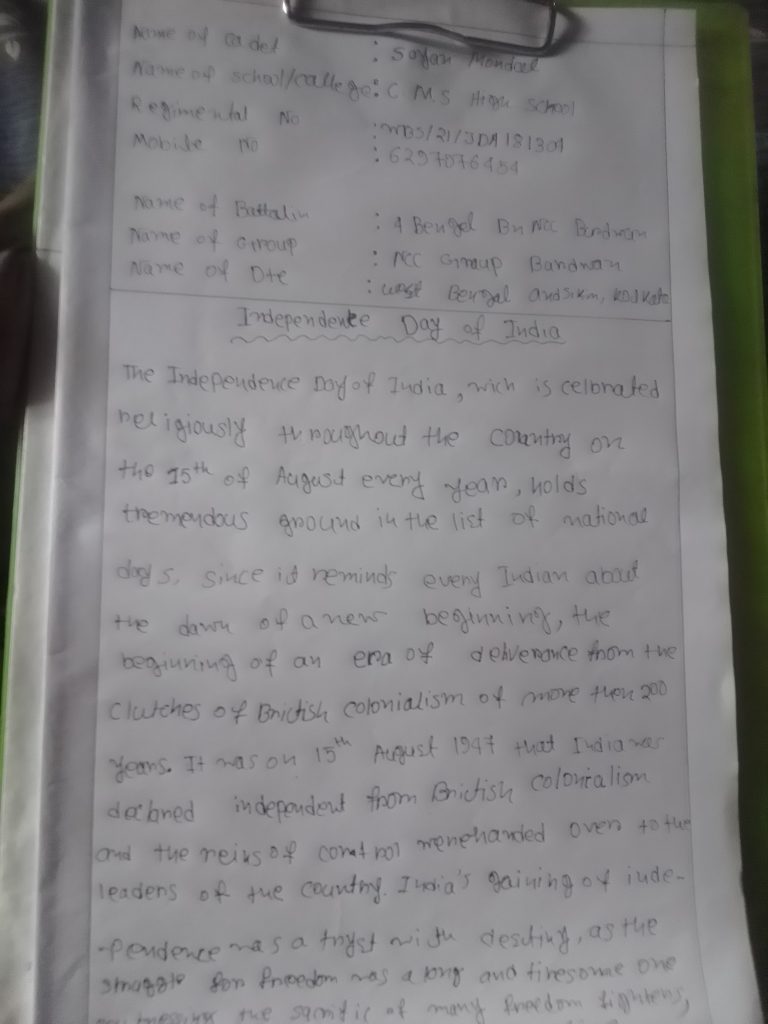 Name of Cadet : Soyan Mondal
Name of school/college : C M S High School
Regimental No : WBS/21/SDA181301
Mobile No : 6297076454
Name of Battalin : 4 Bengal Bn NCC Burdwan
Name of Group : NCC Group Burdwan
Name of Dte : West Bengal and Sikm, Kolkata
Independence Day of India
The Independence Day of India, wich is celbrated
religiously throughout the country on
the 15th of August every year, holds
tremendous ground in the list of national
days, since it reminds every Indian about
the dawn of a new beginning, the
beginning of an era of deliverance from the
clutches of Brictish colonialism of more then 200
years. It was on 15th August 1947 that India was
declared independent from Brictish colonialism
and the reins of control were handed over to the
leaders of the country. India's gaining of inde-
-pendence was a tryst with destiny, as the
struggle for freedom was a long and tiresome one
the sacrific of many freedom fighters,